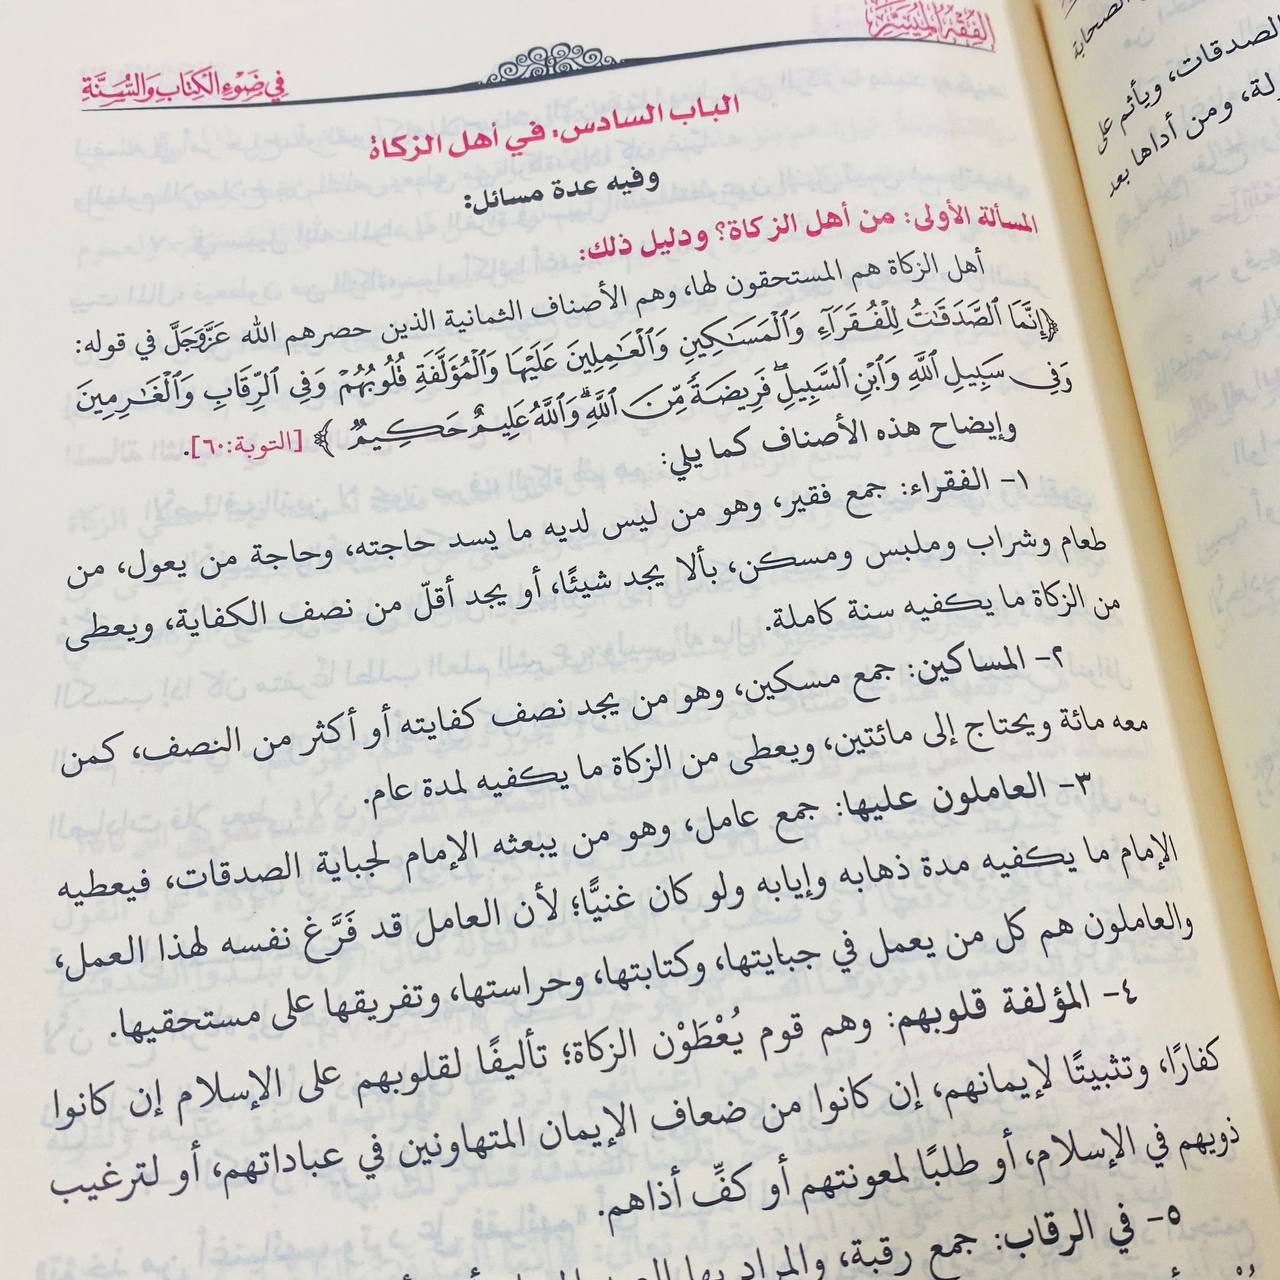 الفِقْهُ المُيَسَّرُ
في ضَوْءِ الكِتَابِ والسُّنَّةِ
الباب السادس: في أهل الزكاة
وفيه عدة مسائل:
المسألة الأولى: من أهل الزكاة؟ ودليل ذلك:
أهل الزكاة هم المستحقون لها، وهم الأصناف الثمانية الذين حصرهم الله عَزَّوَجَلَّ في قوله:
﴿إِنَّمَا ٱلصَّدَقَٰتُ لِلْفُقَرَآءِ وَٱلْمَسَٰكِينِ وَٱلْعَٰمِلِينَ عَلَيْهَا وَٱلْمُؤَلَّفَةِ قُلُوبُهُمْ وَفِي ٱلرِّقَابِ وَٱلْغَٰرِمِينَ
وَفِي سَبِيلِ ٱللَّهِ وَٱبْنِ ٱلسَّبِيلِۖ فَرِيضَةً مِّنَ ٱللَّهِۗ وَٱللَّهُ عَلِيمٌ حَكِيمٌ﴾ [التوبة:٦٠].
وإيضاح هذه الأصناف كما يلي:
١- الفقراء: جمع فقير، وهو من ليس لديه ما يسد حاجته، وحاجة من يعول، من
طعام وشراب وملبس ومسكن، بألا يجد شيئًا، أو يجد أقلّ من نصف الكفاية، ويعطى
من الزكاة ما يكفيه سنة كاملة.
٢- المساكين: جمع مسكين، وهو من يجد نصف كفايته أو أكثر من النصف، كمن
معه مائة ويحتاج إلى مائتين، ويعطى من الزكاة ما يكفيه لمدة عام.
٣- العاملون عليها: جمع عامل، وهو من يبعثه الإمام لجباية الصدقات، فيعطيه
الإمام ما يكفيه مدة ذهابه وإيابه ولو كان غنيًّا؛ لأن العامل قد فَرَّغ نفسه لهذا العمل،
والعاملون هم كل من يعمل في جبايتها، وكتابتها، وحراستها، وتفريقها على مستحقيها.
٤- المؤلفة قلوبهم: وهم قوم يُعْطَوْن الزكاة؛ تأليفًا لقلوبهم على الإسلام إن كانوا
كفارًا، وتثبيتًا لإيمانهم، إن كانوا من ضعاف الإيمان المتهاونين في عباداتهم، أو لترغيب
ذويهم في الإسلام، أو طلبًا لمعونتهم أو كفِّ أذاهم.
٥- في الرقاب: جمع رقبة، والمراد بها
الصحابة
الصدقات، ويأثم على
ومن أداها بعد